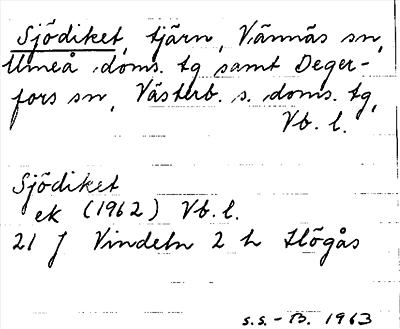 Sjödiket, tjärn, Vännäs sn,
Umeå doms. tg samt Deger-
fors sn, Västerb. s. doms. tg,
Vb. l.
Sjödiket
ek (1962) Vb. l.
21 J Vindeln 2 h Högås
s.s.-B. 1963